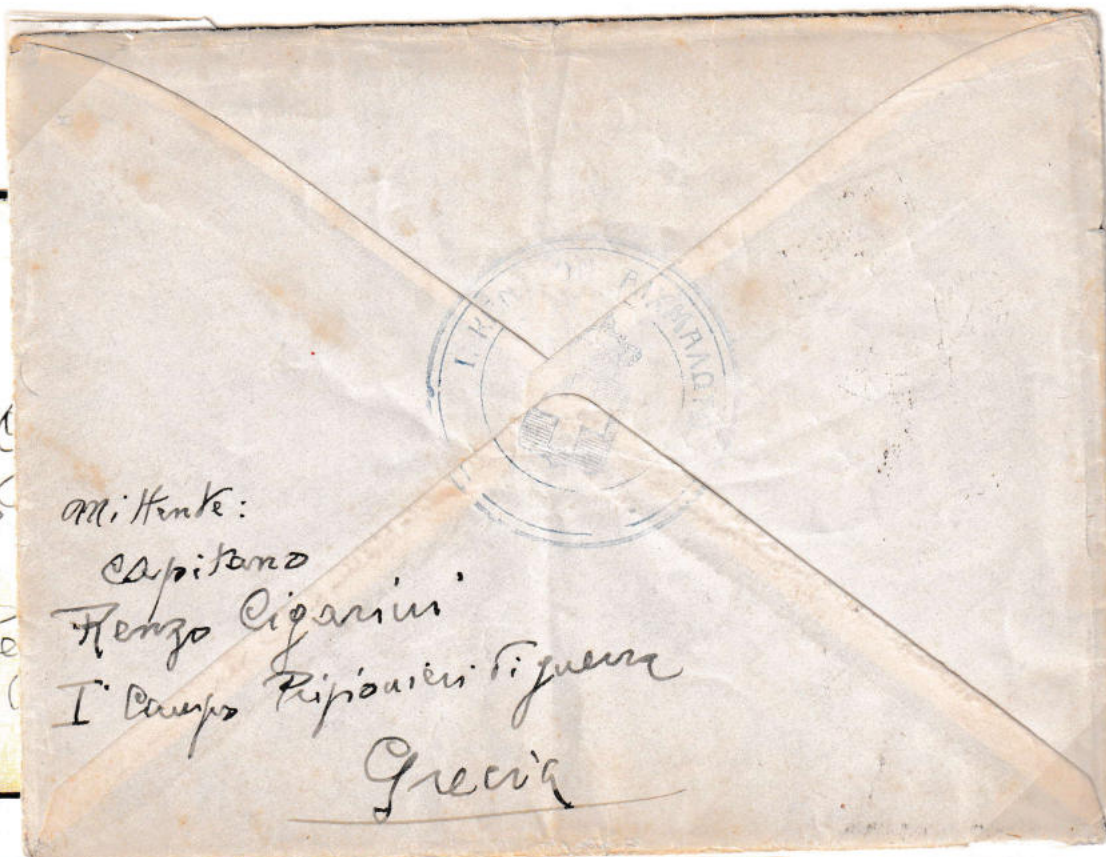 Mittente:
Capitano
Renzo Cigarini
I° Campo Prigionieri di guerra
Grecia